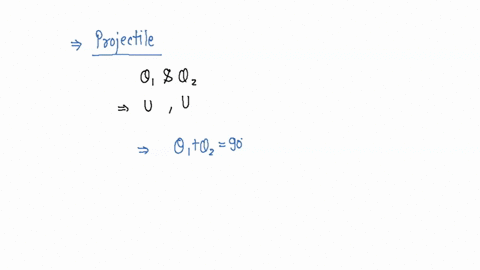 ⇒ Projectile
θ₁ & θ₂
⇒ U , U
⇒ θ₁+θ₂=90°